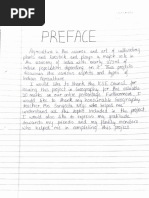 PREFACE
Agriculture is the science and art of cultivating
plants and livestock and plays a major role in
the economy of India with nearly 2/3rd of
Indian population depending on it. This project
discusses the various aspects and types of
Indian Agriculture.
I would like to thank the ICSE Council for
giving this project in Geography for the students
to make us our entire potential. Furthermore I
would like to thank my honourable Geography
teacher the complete help who helped me to
understand the aspect included in the project
I would also like to express my gratitude
towards my parents and my family members
who helped me in completing this project.